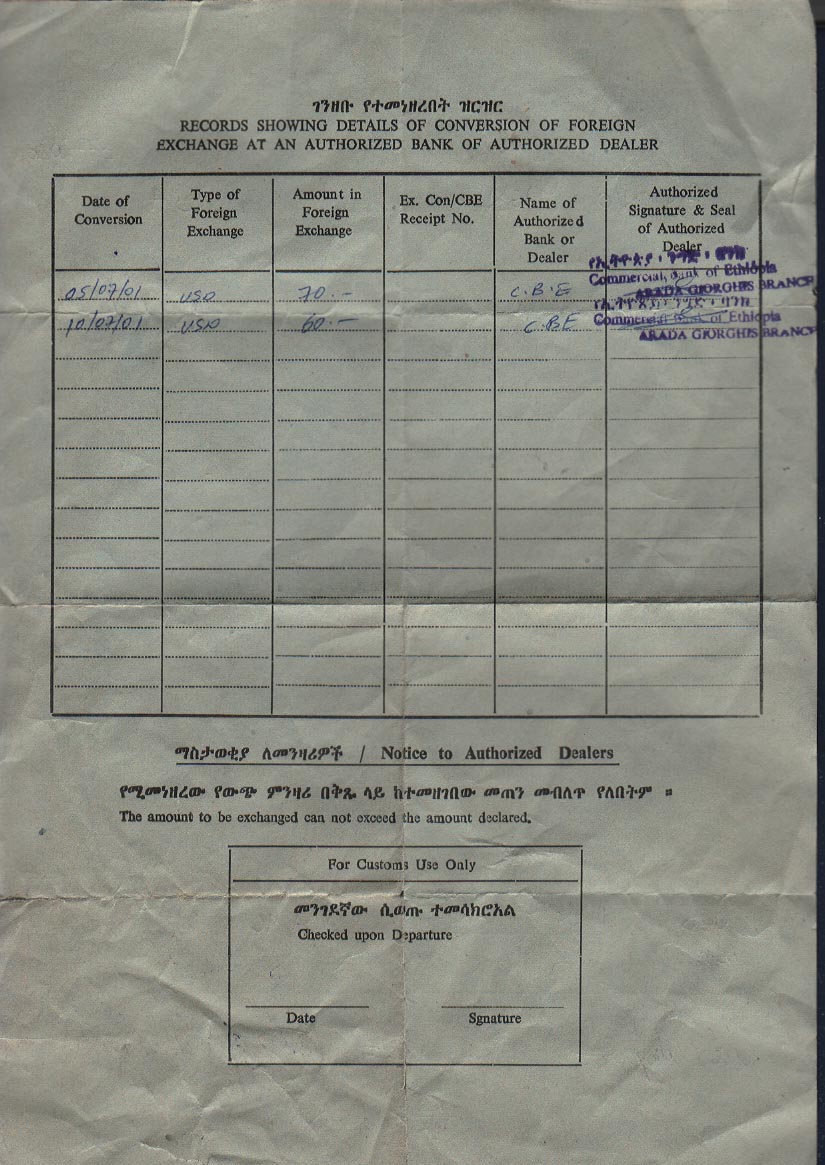 ገንዘቡ የተመነዘረበት ዝርዝር
RECORDS SHOWING DETAILS OF CONVERSION OF FOREIGN
EXCHANGE AT AN AUTHORIZED BANK OF AUTHORIZED DEALER
Date of
Conversion
Type of
Foreign
Exchange
Amount in
Foreign
Exchange
Ex. Con/CBE
Receipt No.
Name of
Authorized
Bank or
Dealer
Authorized
Signature & Seal
of Authorized
Dealer
05/07/01 USD 70.— C.B.E
የኢትዮጵያ ንግድ ባንክ
Commercial Bank of Ethiopia
ARADA GIORGHIS BRANCH
10/07/01 USD 60.— C.BE
የኢትዮጵያ ንግድ ባንክ
Commercial Bank of Ethiopia
ARADA GIORGHIS BRANCH
ማስታወቂያ ለመንዛሪዎች / Notice to Authorized Dealers
የሚመነዘረው የውጭ ምንዛሪ በቅጹ ላይ ከተመዘገበው መጠን መብለጥ የለበትም ።
The amount to be exchanged can not exceed the amount declared.
For Customs Use Only
መንገደኛው ሲወጡ ተመሳክሮአል
Checked upon Departure
Date Sgnature